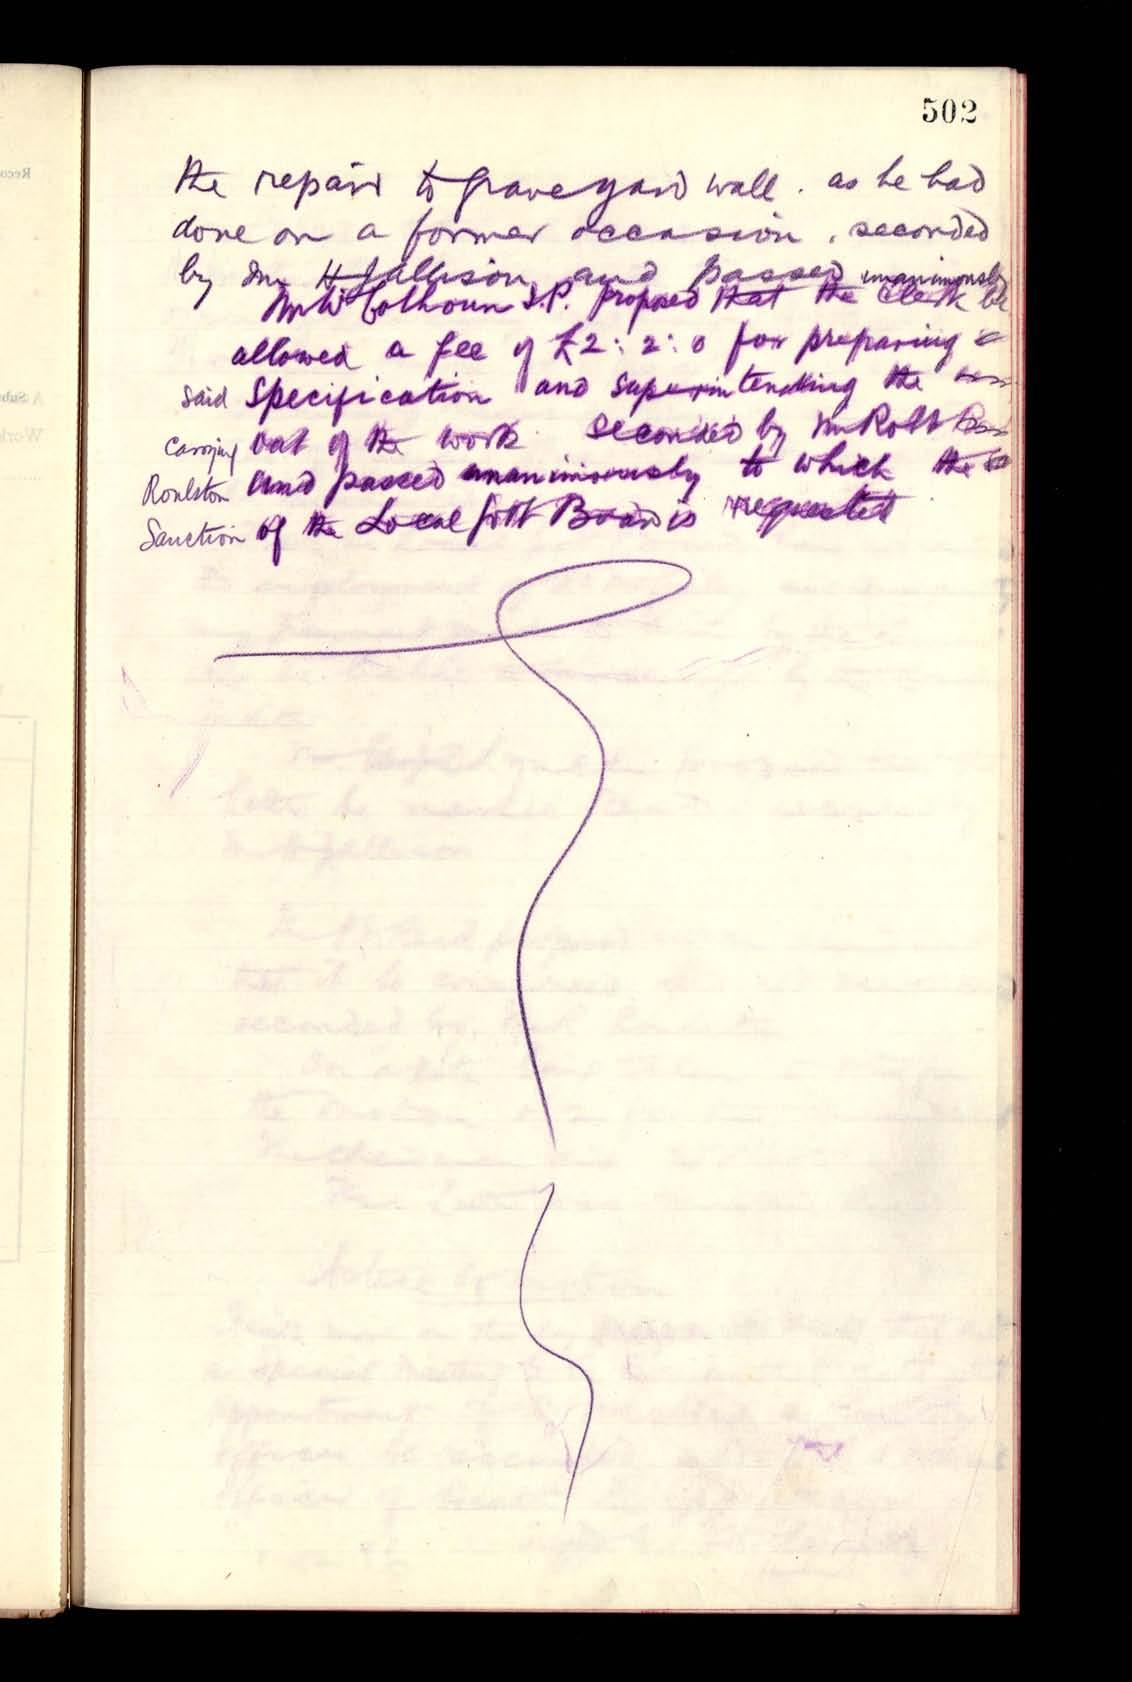 502
the repair to graveyard wall. as he had
done on a former occasion, seconded
by Mr H J Allison and passed unanimously
Mr W Colhoun J.P. proposed that the Clerk be
allowed a fee of £2:2:0 for preparing
said Specification and superintending the
carrying out of the work. Seconded by Mr Robt
Roulston and passed unanimously to which the
Sanction of the Local Govt Board is requested